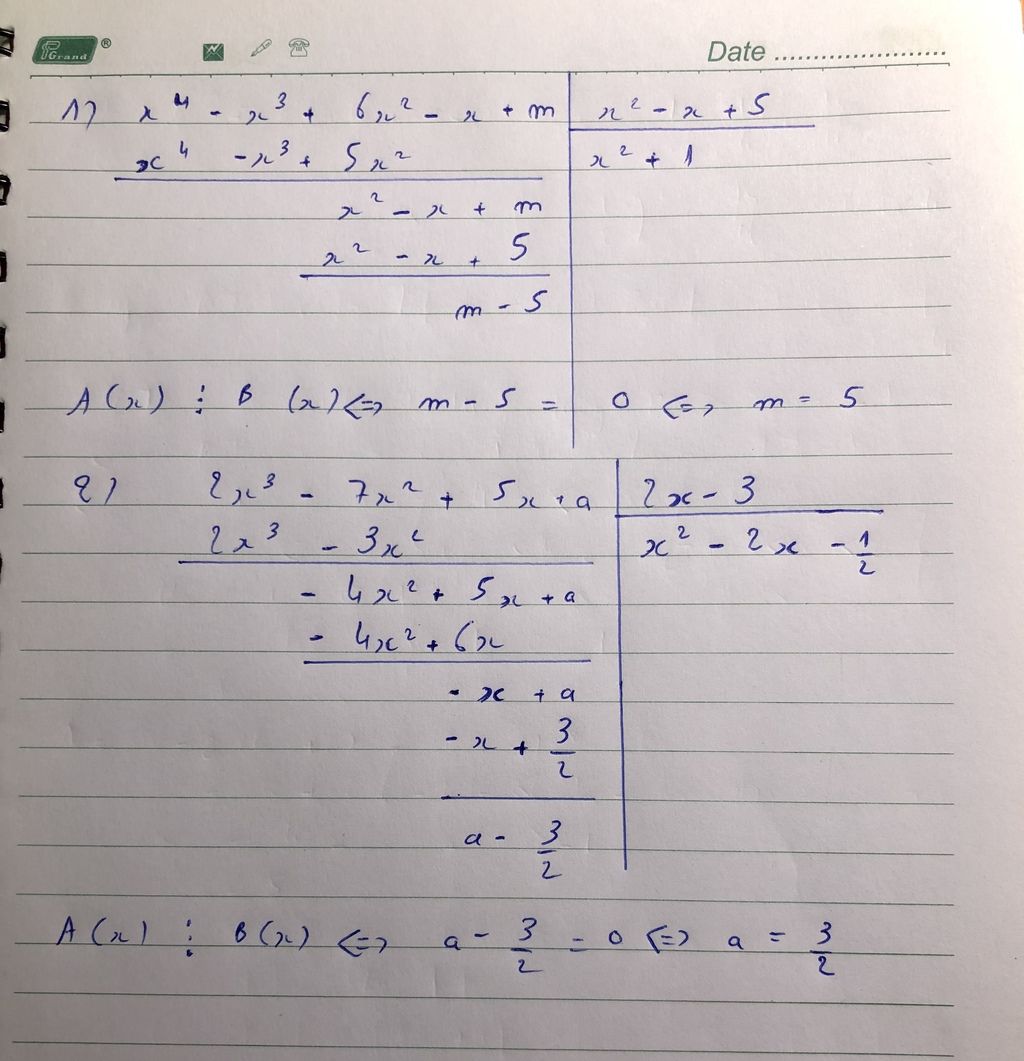 PGrand ® Date ......................
1) x⁴ - x³ + 6x² - x + m | x² - x + 5
x⁴ - x³ + 5x² | x² + 1
x² - x + m
x² - x + 5
m - 5
A(x) ⋮ B(x) <=> m - 5 = 0 <=> m = 5
2) 2x³ - 7x² + 5x + a | 2x - 3
2x³ - 3x² | x² - 2x - 1/2
- 4x² + 5x + a
- 4x² + 6x
- x + a
- x + 3/2
a - 3/2
A(x) ⋮ B(x) <=> a - 3/2 = 0 <=> a = 3/2